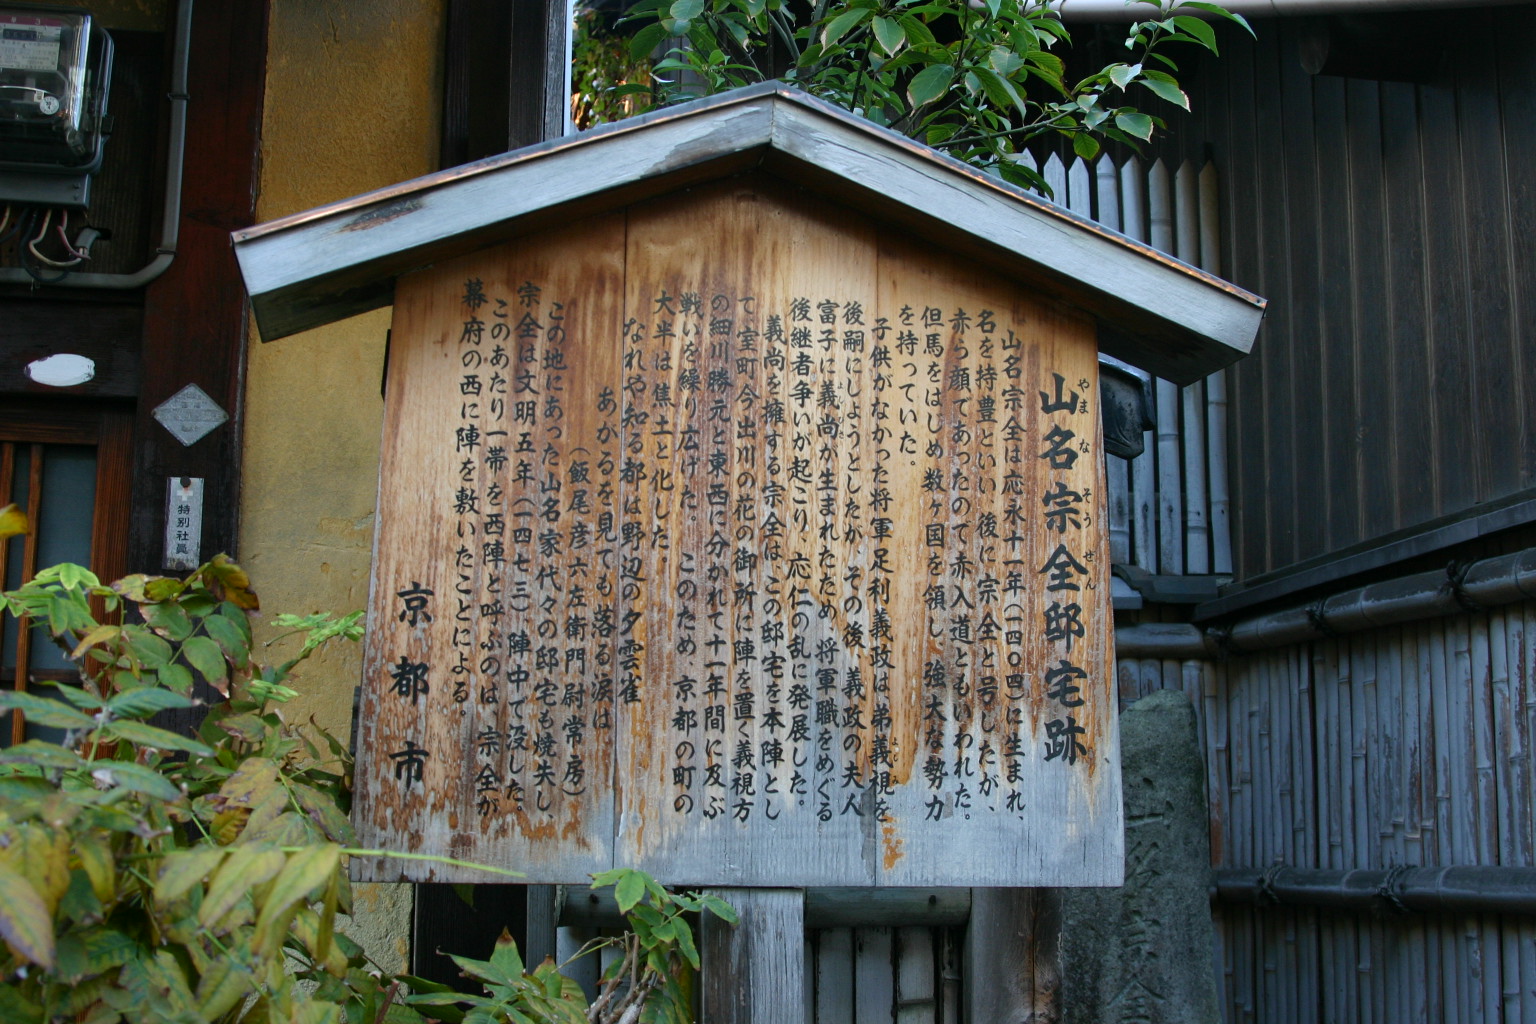 山名宗全邸宅跡
やまなそうぜん
山名宗全は応永十一年(一四〇四)に生まれ、
名を持豊といい、後に宗全と号したが、
赤ら顔であったので赤入道ともいわれた。
但馬をはじめ数ヶ国を領し、強大な勢力
を持っていた。
子供がなかった将軍足利義政は弟義視を
よしみ
後嗣にしようとしたが、その後、義政の夫人
富子に義尚が生まれたため、将軍職をめぐる
後継者争いが起こり、応仁の乱に発展した。
義尚を擁する宗全は、この邸宅を本陣とし
て、室町今出川の花の御所に陣を置く義視方
の細川勝元と東西に分かれて十一年間に及ぶ
戦いを繰り広げた。このため、京都の町の
大半は焦土と化した。
なれや知る都は野辺の夕雲雀
あがるを見ても落る涙は
(飯尾彦六左衛門尉常房)
この地にあった山名家代々の邸宅も焼失し、
宗全は文明五年(一四七三)陣中で没した。
このあたり一帯を西陣と呼ぶのは、宗全が
幕府の西に陣を敷いたことによる
京都市
特別社員